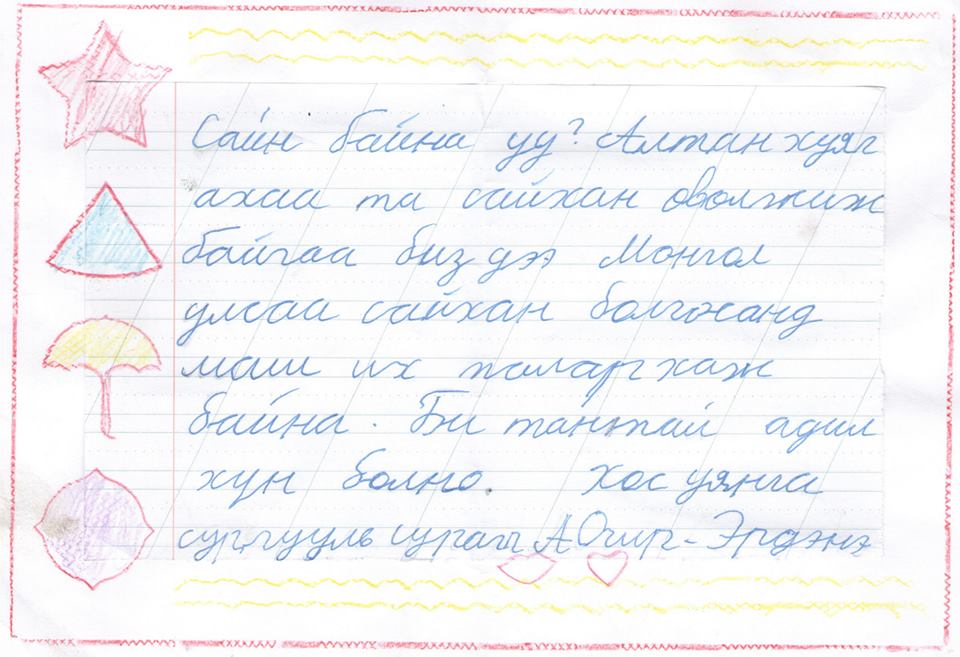 Сайн байна уу? Алтанхуяг
ахаа та сайхан өвөлжиж
байгаа биз дээ Монгол
улсаа сайхан болгосонд
маш их талархаж
байна. Би тантай адил
хүн болно. Хос уянга
сургууль сурагч А Очир-Эрдэнэ